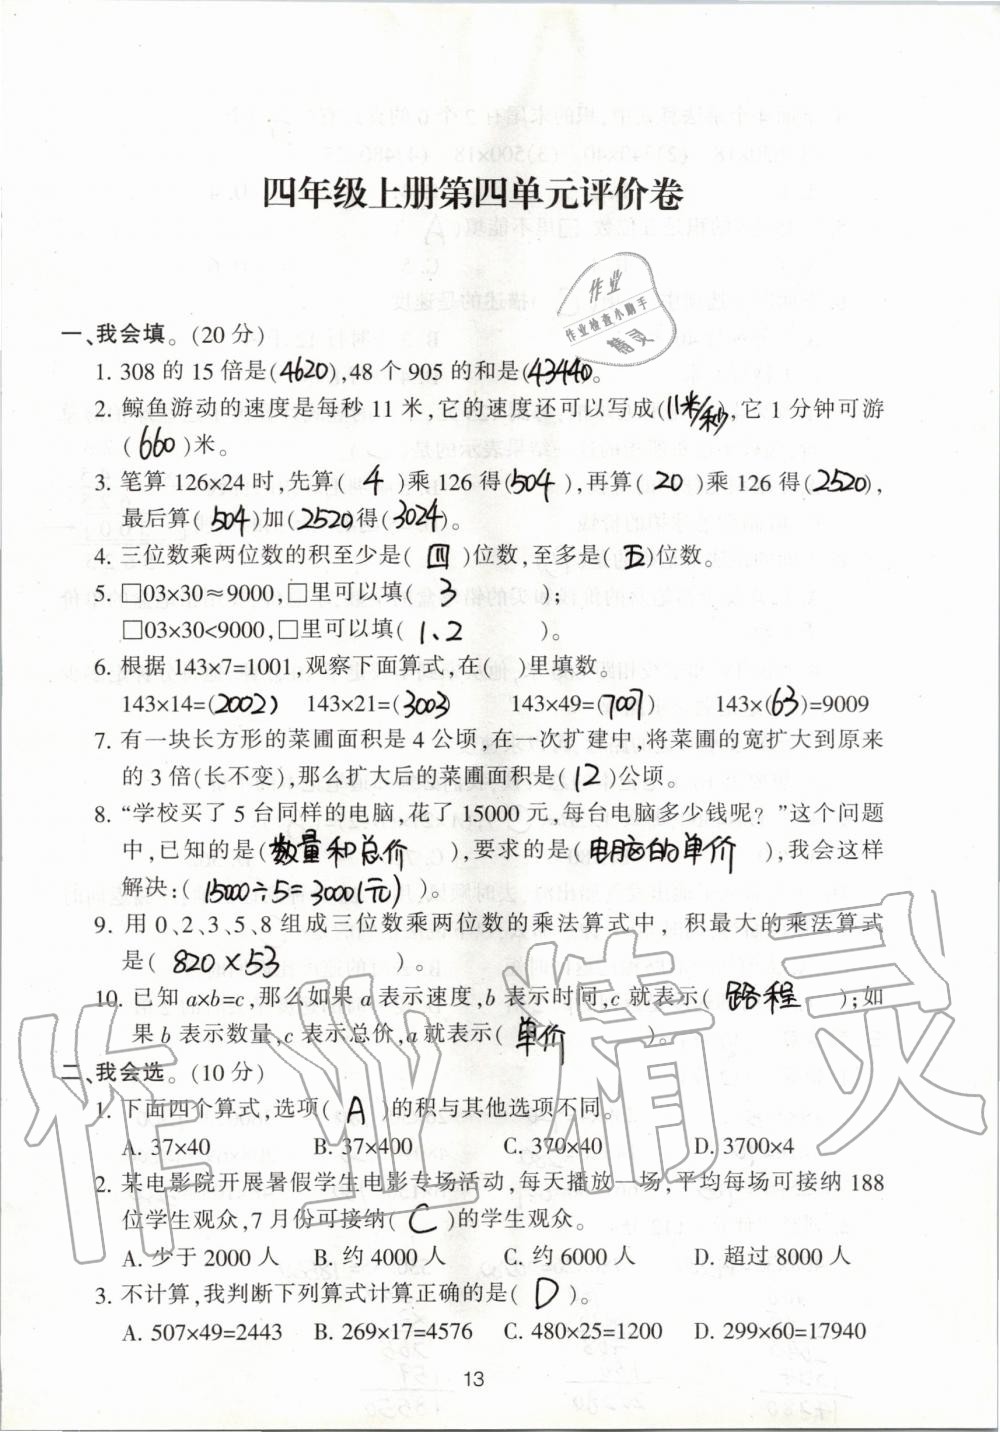 四年级上册第四单元评价卷
作业
作业检查小助手
精灵
一、我会填。(20 分)
1. 308 的 15 倍是(4620),48 个 905 的和是(43440)。
2. 鲸鱼游动的速度是每秒 11 米,它的速度还可以写成(11米/秒),它 1 分钟可游
(660)米。
3. 笔算 126×24 时,先算( 4 )乘 126 得(504),再算( 20 )乘 126 得(2520),
最后算(504)加(2520)得(3024)。
4. 三位数乘两位数的积至少是( 四 )位数,至多是( 五 )位数。
5. □03×30≈9000,□里可以填( 3 );
□03×30<9000,□里可以填( 1、2 )。
6. 根据 143×7=1001,观察下面算式,在( )里填数。
143×14=(2002) 143×21=(3003) 143×49=(7007) 143×(63)=9009
7. 有一块长方形的菜圃面积是 4 公顷,在一次扩建中,将菜圃的宽扩大到原来
的 3 倍(长不变),那么扩大后的菜圃面积是(12)公顷。
8. “学校买了 5 台同样的电脑,花了 15000 元,每台电脑多少钱呢？”这个问题
中,已知的是(数量和总价),要求的是(电脑的单价),我会这样
解决:(15000÷5=3000(元))。
9. 用 0、2、3、5、8 组成三位数乘两位数的乘法算式中，积最大的乘法算式
是( 820×53 )。
10. 已知 a×b=c,那么如果 a 表示速度,b 表示时间,c 就表示( 路程 );如
果 b 表示数量,c 表示总价,a 就表示( 单价 )。
二、我会选。(10 分)
1. 下面四个算式,选项( A )的积与其他选项不同。
A. 37×40 B. 37×400 C. 370×40 D. 3700×4
2. 某电影院开展暑假学生电影专场活动,每天播放一场,平均每场可接纳 188
位学生观众,7 月份可接纳( C )的学生观众。
A. 少于 2000 人 B. 约 4000 人 C. 约 6000 人 D. 超过 8000 人
3. 不计算,我判断下列算式计算正确的是( D )。
A. 507×49=2443 B. 269×17=4576 C. 480×25=1200 D. 299×60=17940
13
作业精灵